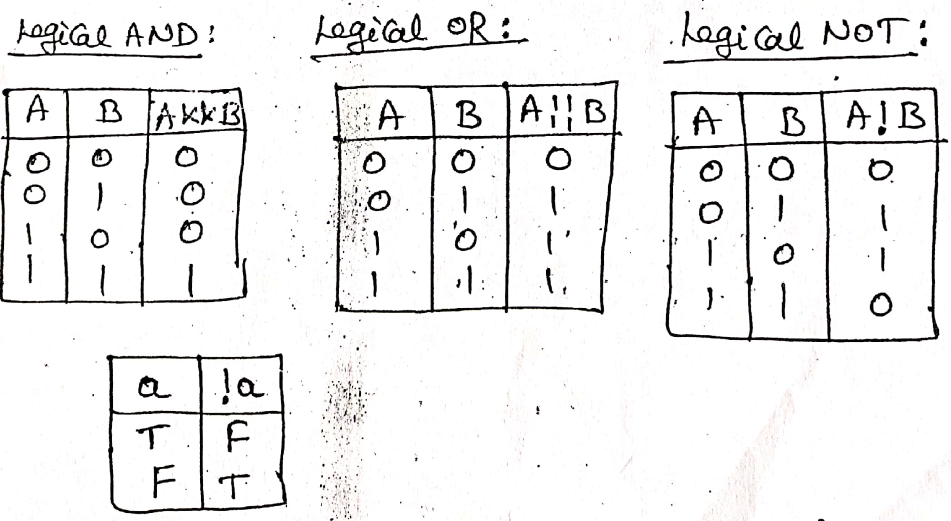 Logical AND:
A B A&&B
0 0 0
0 1 0
1 0 0
1 1 1
Logical OR:
A B A||B
0 0 0
0 1 1
1 0 1
1 1 1
Logical NOT:
A B A!B
0 0 0
0 1 1
1 0 1
1 1 0
a !a
T F
F T